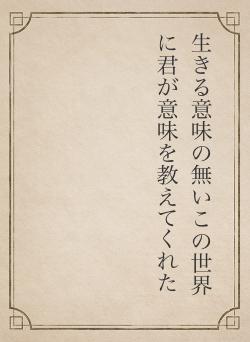 生きる意味の無いこの世界
に君が意味を教えてくれた